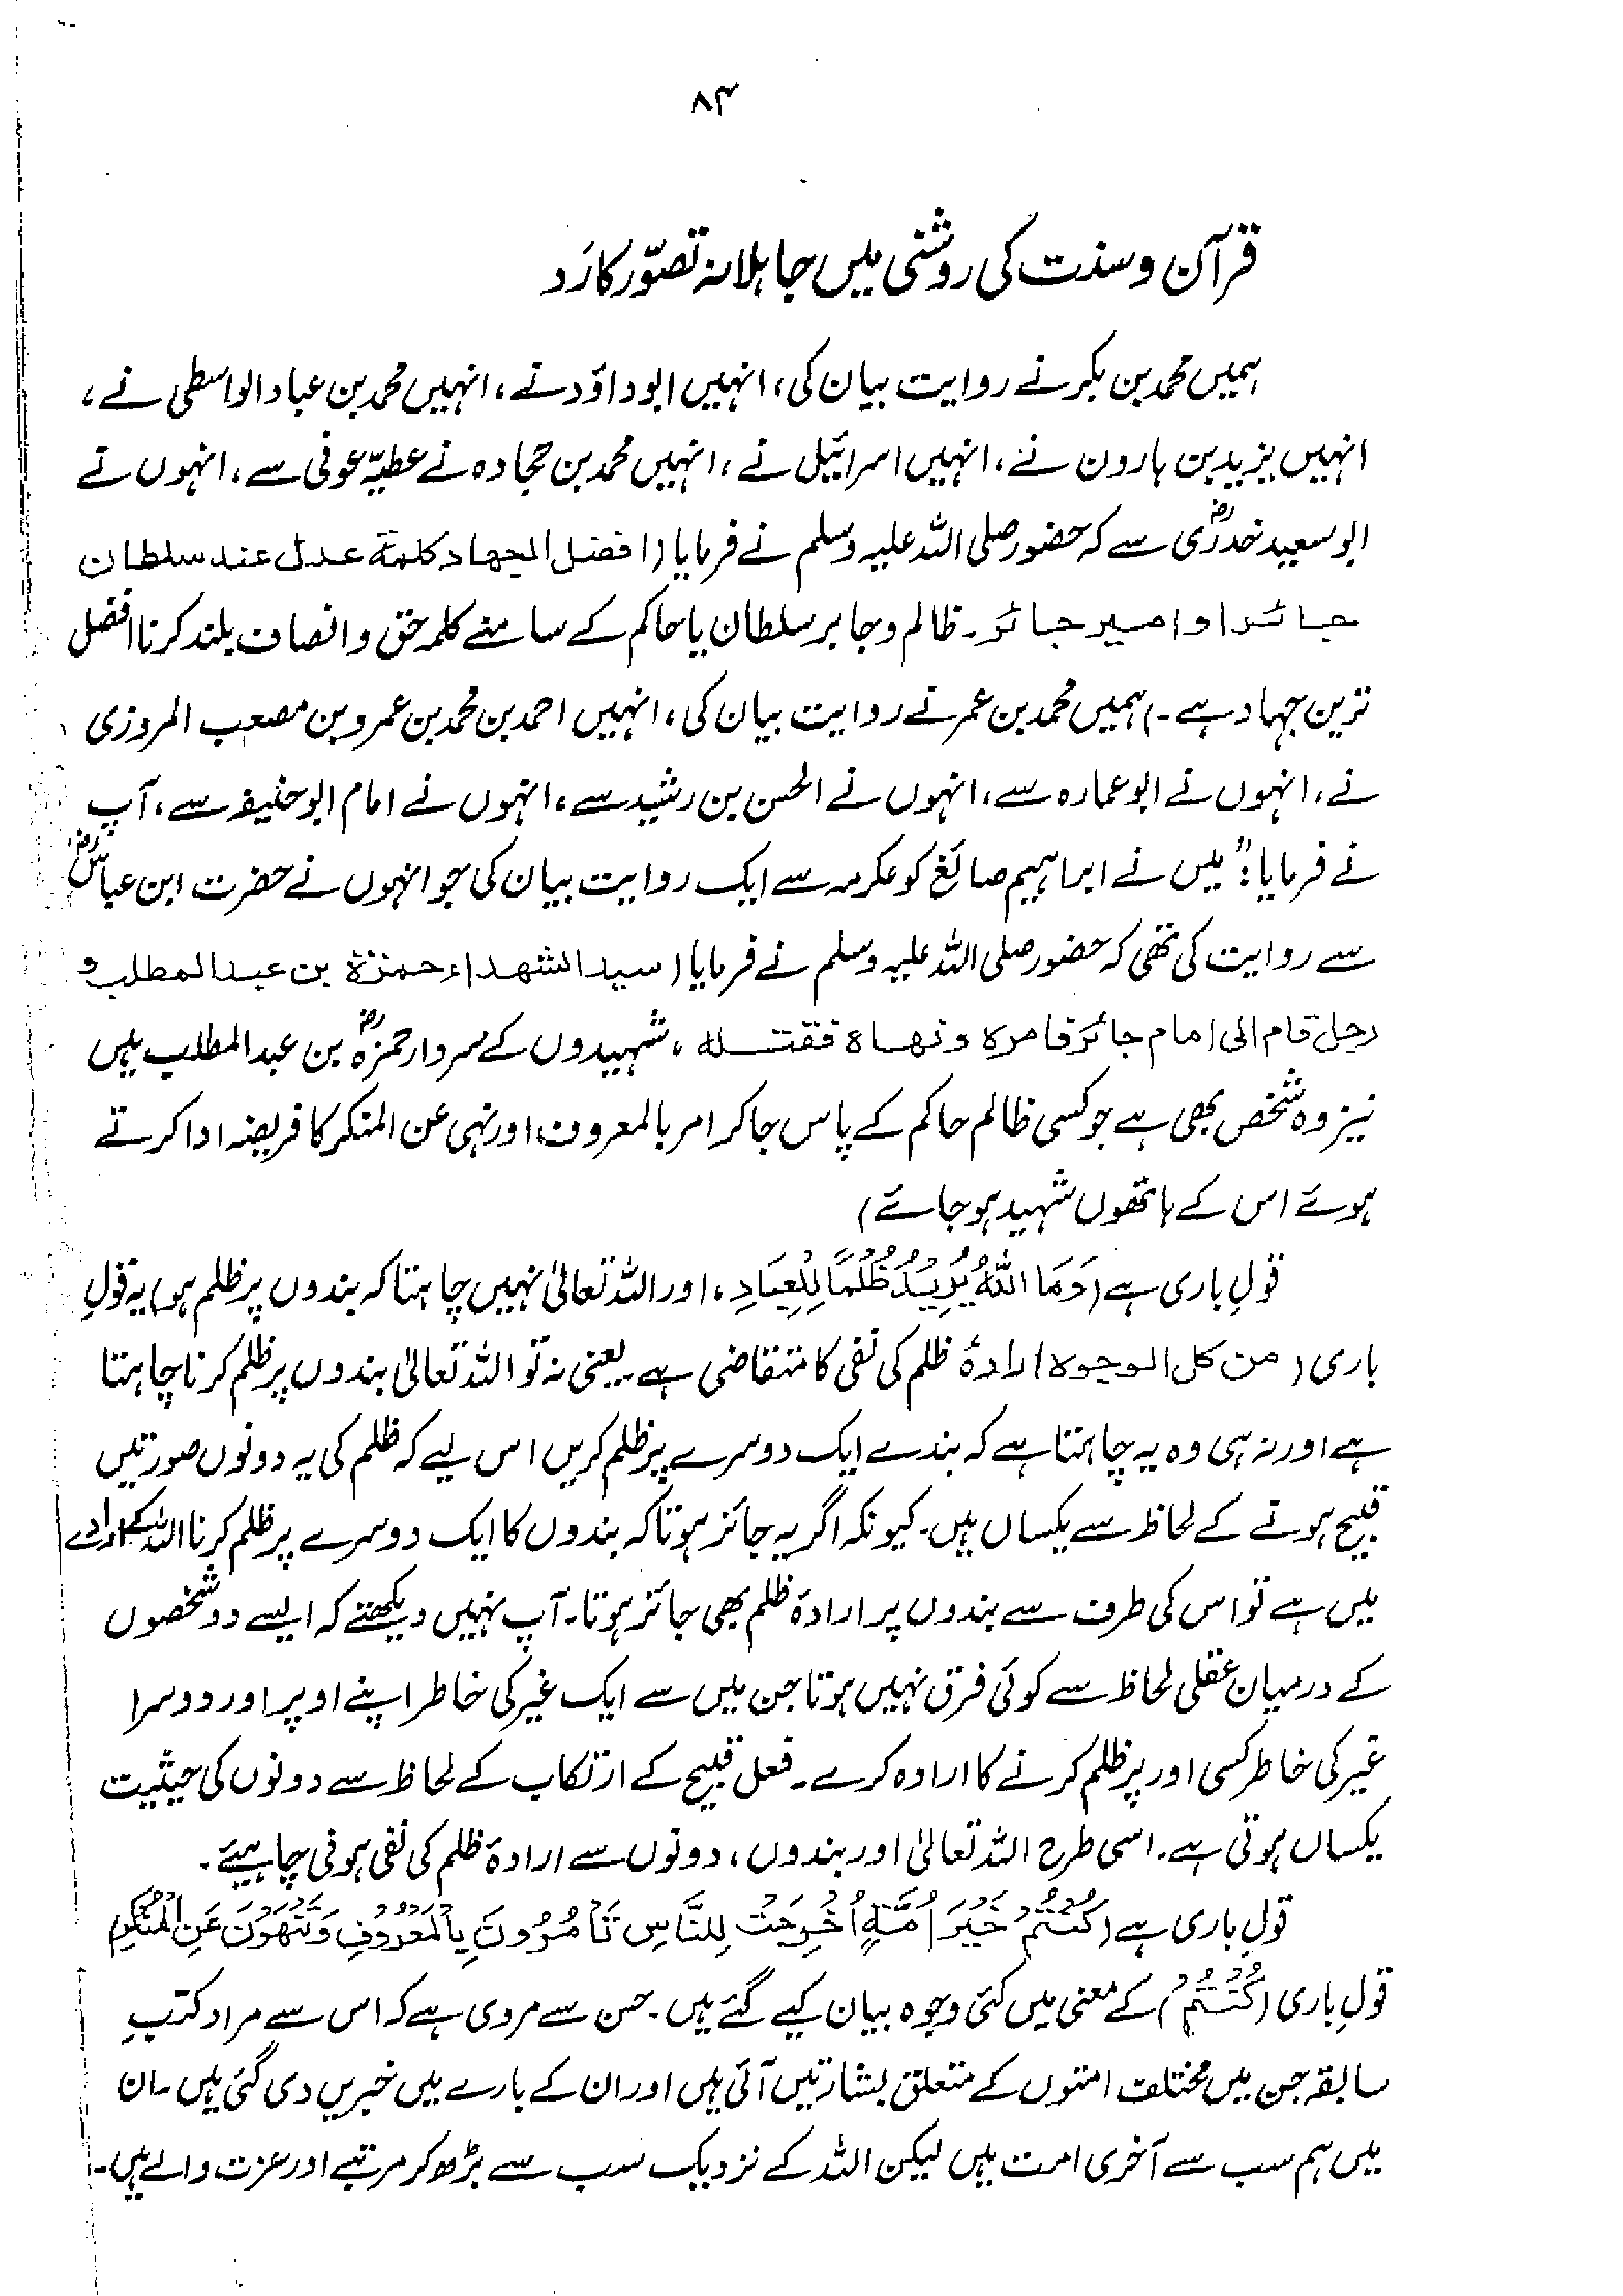 ۸۴
قرآن و سنت کی روشنی میں جاہلانہ تصوّر کا رَد
ہمیں محمد بن بکر نے روایت بیان کی، انہیں ابوداؤد نے، انہیں محمد بن عباد الواسطی نے،
انہیں یزید بن ہارون نے، انہیں اسرائیل نے، انہیں محمد بن حجادہ نے عطیہّ عوفی سے، انہوں نے
ابو سعید خدریؓ سے کہ حضور صلی اللہ علیہ وسلم نے فرمایا (افضل الجھاد کلمۃ عدل عند سلطان
جائر او امیر جائر۔ ظالم و جابر سلطان یا حاکم کے سامنے کلمہ حق و انصاف بلند کرنا افضل
ترین جہاد ہے۔) ہمیں محمد بن عمر نے روایت بیان کی، انہیں احمد بن محمد بن عمرو بن مصعب المروزی
نے، انہوں نے ابو عمارہ سے، انہوں نے الحسن بن رشید سے، انہوں نے امام ابو حنیفہ سے، آپ
نے فرمایا: "میں نے ابراہیم صائغ کو عکرمہ سے ایک روایت بیان کی جو انہوں نے حضرت ابن عباسؓ
سے روایت کی تھی کہ حضور صلی اللہ علیہ وسلم نے فرمایا (سید الشھداء حمزۃ بن عبد المطلب و
رجل قام الی امام جائر فامرہ ونھاہ فقتلہ، شہیدوں کے سردار حمزہؓ بن عبد المطلب ہیں
نیز وہ شخص بھی ہے جو کسی ظالم حاکم کے پاس جا کر امر بالمعروف اور نہی عن المنکر کا فریضہ ادا کرتے
ہوئے اس کے ہاتھوں شہید ہو جائے)
قولِ باری ہے (وَمَا اللّٰهُ يُرِيْدُ ظُلْمًا لِلْعِبَادِ، اور اللہ تعالیٰ نہیں چاہتا کہ بندوں پر ظلم ہو) یہ قولِ
باری (من کل الوجوہ) ارادۂ ظلم کی نفی کا متقاضی ہے۔ یعنی نہ تو اللہ تعالیٰ بندوں پر ظلم کرنا چاہتا
ہے اور نہ ہی وہ یہ چاہتا ہے کہ بندے ایک دوسرے پر ظلم کریں اس لیے کہ ظلم کی یہ دونوں صورتیں
قبیح ہونے کے لحاظ سے یکساں ہیں۔ کیونکہ اگر یہ جائز ہوتا کہ بندوں کا ایک دوسرے پر ظلم کرنا اللہ کے ارادے
میں ہے تو اس کی طرف سے بندوں پر ارادۂ ظلم بھی جائز ہوتا۔ آپ نہیں دیکھتے کہ ایسے دو شخصوں
کے درمیان عقلی لحاظ سے کوئی فرق نہیں ہوتا جن میں سے ایک غیر کی خاطر اپنے اوپر اور دوسرا
غیر کی خاطر کسی اور پر ظلم کرنے کا ارادہ کرے۔ فعل قبیح کے ارتکاب کے لحاظ سے دونوں کی حیثیت
یکساں ہوتی ہے۔ اسی طرح اللہ تعالیٰ اور بندوں، دونوں سے ارادۂ ظلم کی نفی ہونی چاہیئے۔
قولِ باری ہے (كُنْتُمْ خَيْرَ اُمَّةٍ اُخْرِجَتْ لِلنَّاسِ تَاْمُرُوْنَ بِالْمَعْرُوْفِ وَتَنْهَوْنَ عَنِ الْمُنْكَرِ)
قولِ باری (كُنْتُمْ) کے معنی میں کئی وجوہ بیان کیے گئے ہیں۔ حسن سے مروی ہے کہ اس سے مراد کتبِ
سابقہ جن میں مختلف امتوں کے متعلق بشارتیں آئی ہیں اور ان کے بارے میں خبریں دی گئی ہیں۔ ان
میں ہم سب سے آخری امت ہیں لیکن اللہ کے نزدیک سب سے بڑھ کر مرتبے اور عزت والے ہیں۔